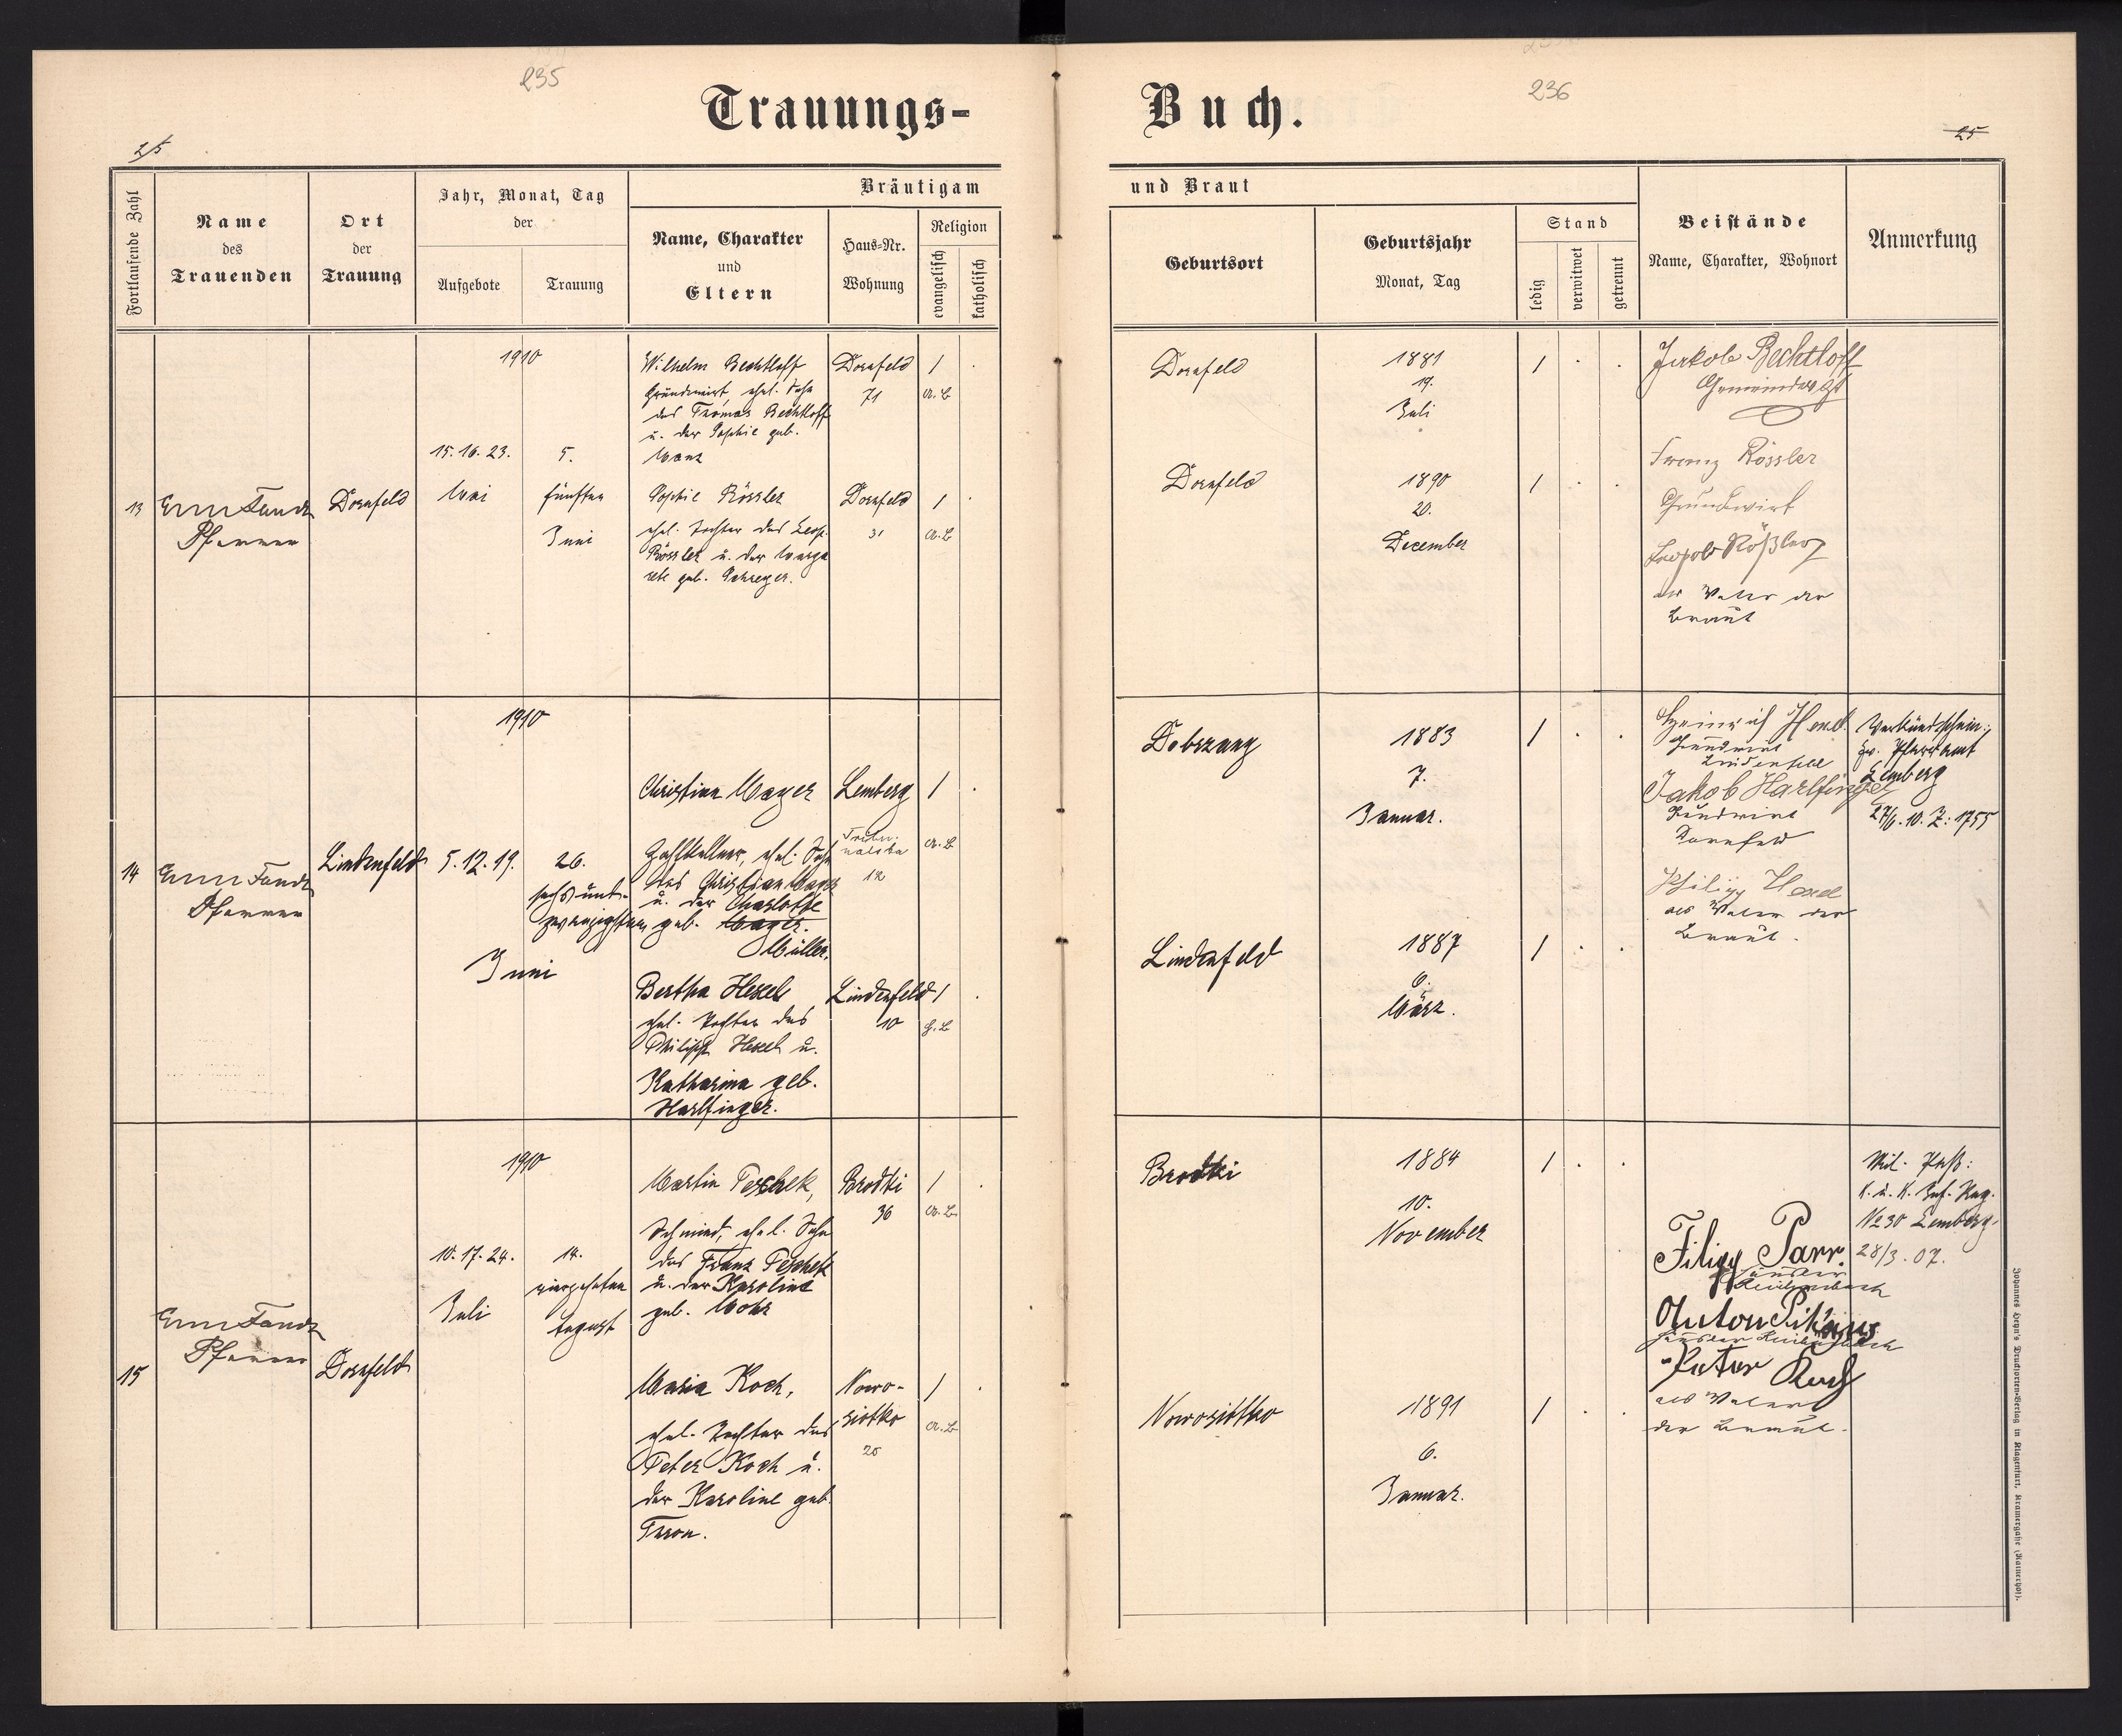 235
236
Trauungs-
Buch.
25
25
Fortlaufende Zahl
Name
des
Trauenden
Ort
der
Trauung
Jahr, Monat, Tag
der
Aufgebote
Trauung
Bräutigam
Name, Charakter
und
Eltern
Haus-Nr.
Wohnung
Religion
evangelisch
katholisch
und Braut
Geburtsort
Geburtsjahr
Monat, Tag
Stand
ledig
verwitwet
getrennt
Beistände
Name, Charakter, Wohnort
Anmerkung
13
Pfarrer
Dornfeld
1910
15. 16. 23.
Mai
5.
fünften
Juni
Wilhelm Bechtloff
Grundwirt, ehel. Sohn
des Thomas Bechtloff
u. der Sophie geb.
Manz
Dornfeld
71
/
A. B
Sophie Rössler
ehel. Tochter des Leop.
Rössler u. der Marga
rete geb. Schreyer.
Dornfeld
31
/
A. B
Dornfeld
1881
19.
Juli
/
Dornfeld
1890
20.
December
/
Jakob Bechtloff
Franz Rössler
Grundwirt
Leopold Rößler
als Vater der
Braut
14
Pfarrer
Lindenfeld
1910
5. 12. 19.
26.
sechsund-
zwanzigsten
Juni
Christian Mayer
Zahlkellner, ehel. Sohn
des Christian Mayer
u. der Charlotte
geb. Mayer.
Müller.
Lemberg
12
/
A. B
Bertha Hexel
ehel. Tochter des
Philipp Hexel u.
Katharina geb.
Harlfinger.
Lindenfeld
10
/
H. B
Dobrzany
1883
7.
Januar.
/
Lindenfeld
1887
6.
März.
/
Heinrich Hexel
Grundwirt
Lindenfeld
Jakob Harlfinger
Grundwirt
Dornfeld
Philipp Hexel
als Vater der
Braut.
Verkündschein:
ev. Pfarramt
Lemberg
27/6. 10. Z: 1755
15
Pfarrer
Dornfeld
1910
10. 17. 24.
Juli
14.
vierzehnten
August
Martin Peschek,
Schmied, ehel. Sohn
des Franz Peschek
u. der Karoline
geb. Mohr
Brodki
36
/
A. B.
Maria Koch,
ehel. Tochter des
Peter Koch u.
der Karoline geb.
Nowo-
siołko
/
A. B
Brodki
1884
10.
November
/
Nowosiołko
1891
6.
Januar.
/
Filipp Parr.
Reichenbach
Anton
Reichenbach
Peter Koch
als Vater
der Braut.
Mil. Paß:
k. u. k. Inf. Reg.
No 30 Lemberg.
28/3. 07.